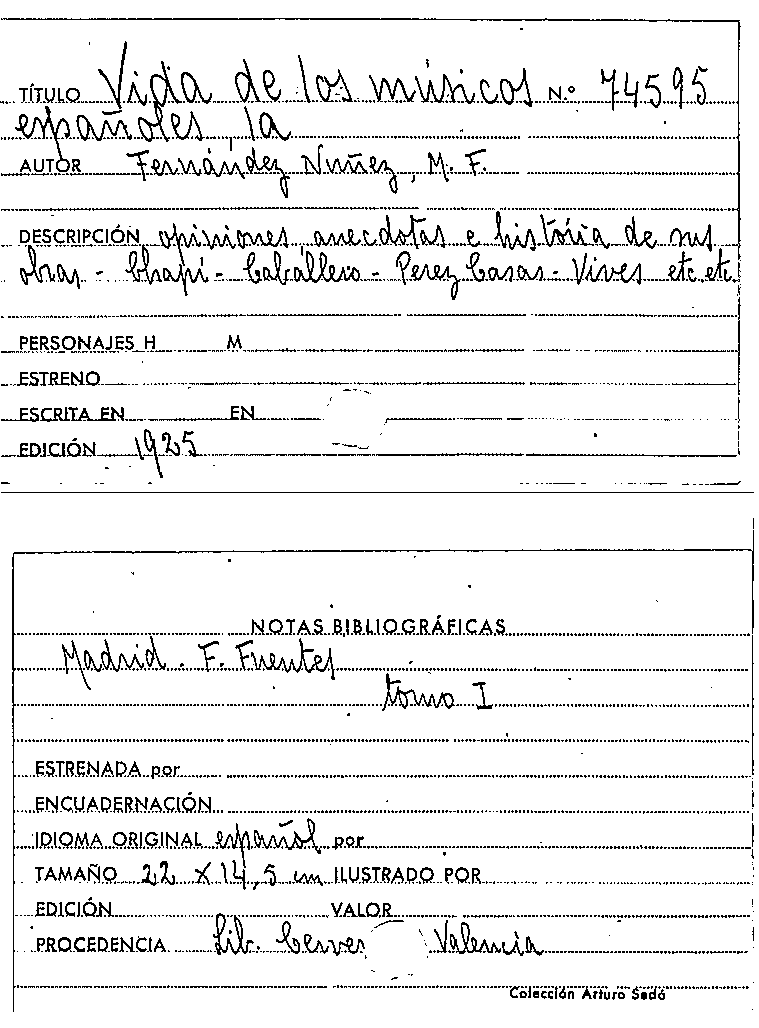 TÍTULO Vida de los músicos N.º 74595
españoles, la
AUTOR Fernández Nuñez, M. F.
DESCRIPCIÓN opiniones, anecdotas e história de sus
obras - Chapí - Caballero - Perez Casas - Vives etc. etc.
PERSONAJES H M
ESTRENO
ESCRITA EN EN
EDICIÓN 1925
NOTAS BIBLIOGRÁFICAS
Madrid. F. Fuentes
tomo I
ESTRENADA por
ENCUADERNACIÓN
IDIOMA ORIGINAL español por
TAMAÑO 22 X 14,5 cm ILUSTRADO POR
EDICIÓN VALOR
PROCEDENCIA Lib. Valencia
Colección Arturo Sedó